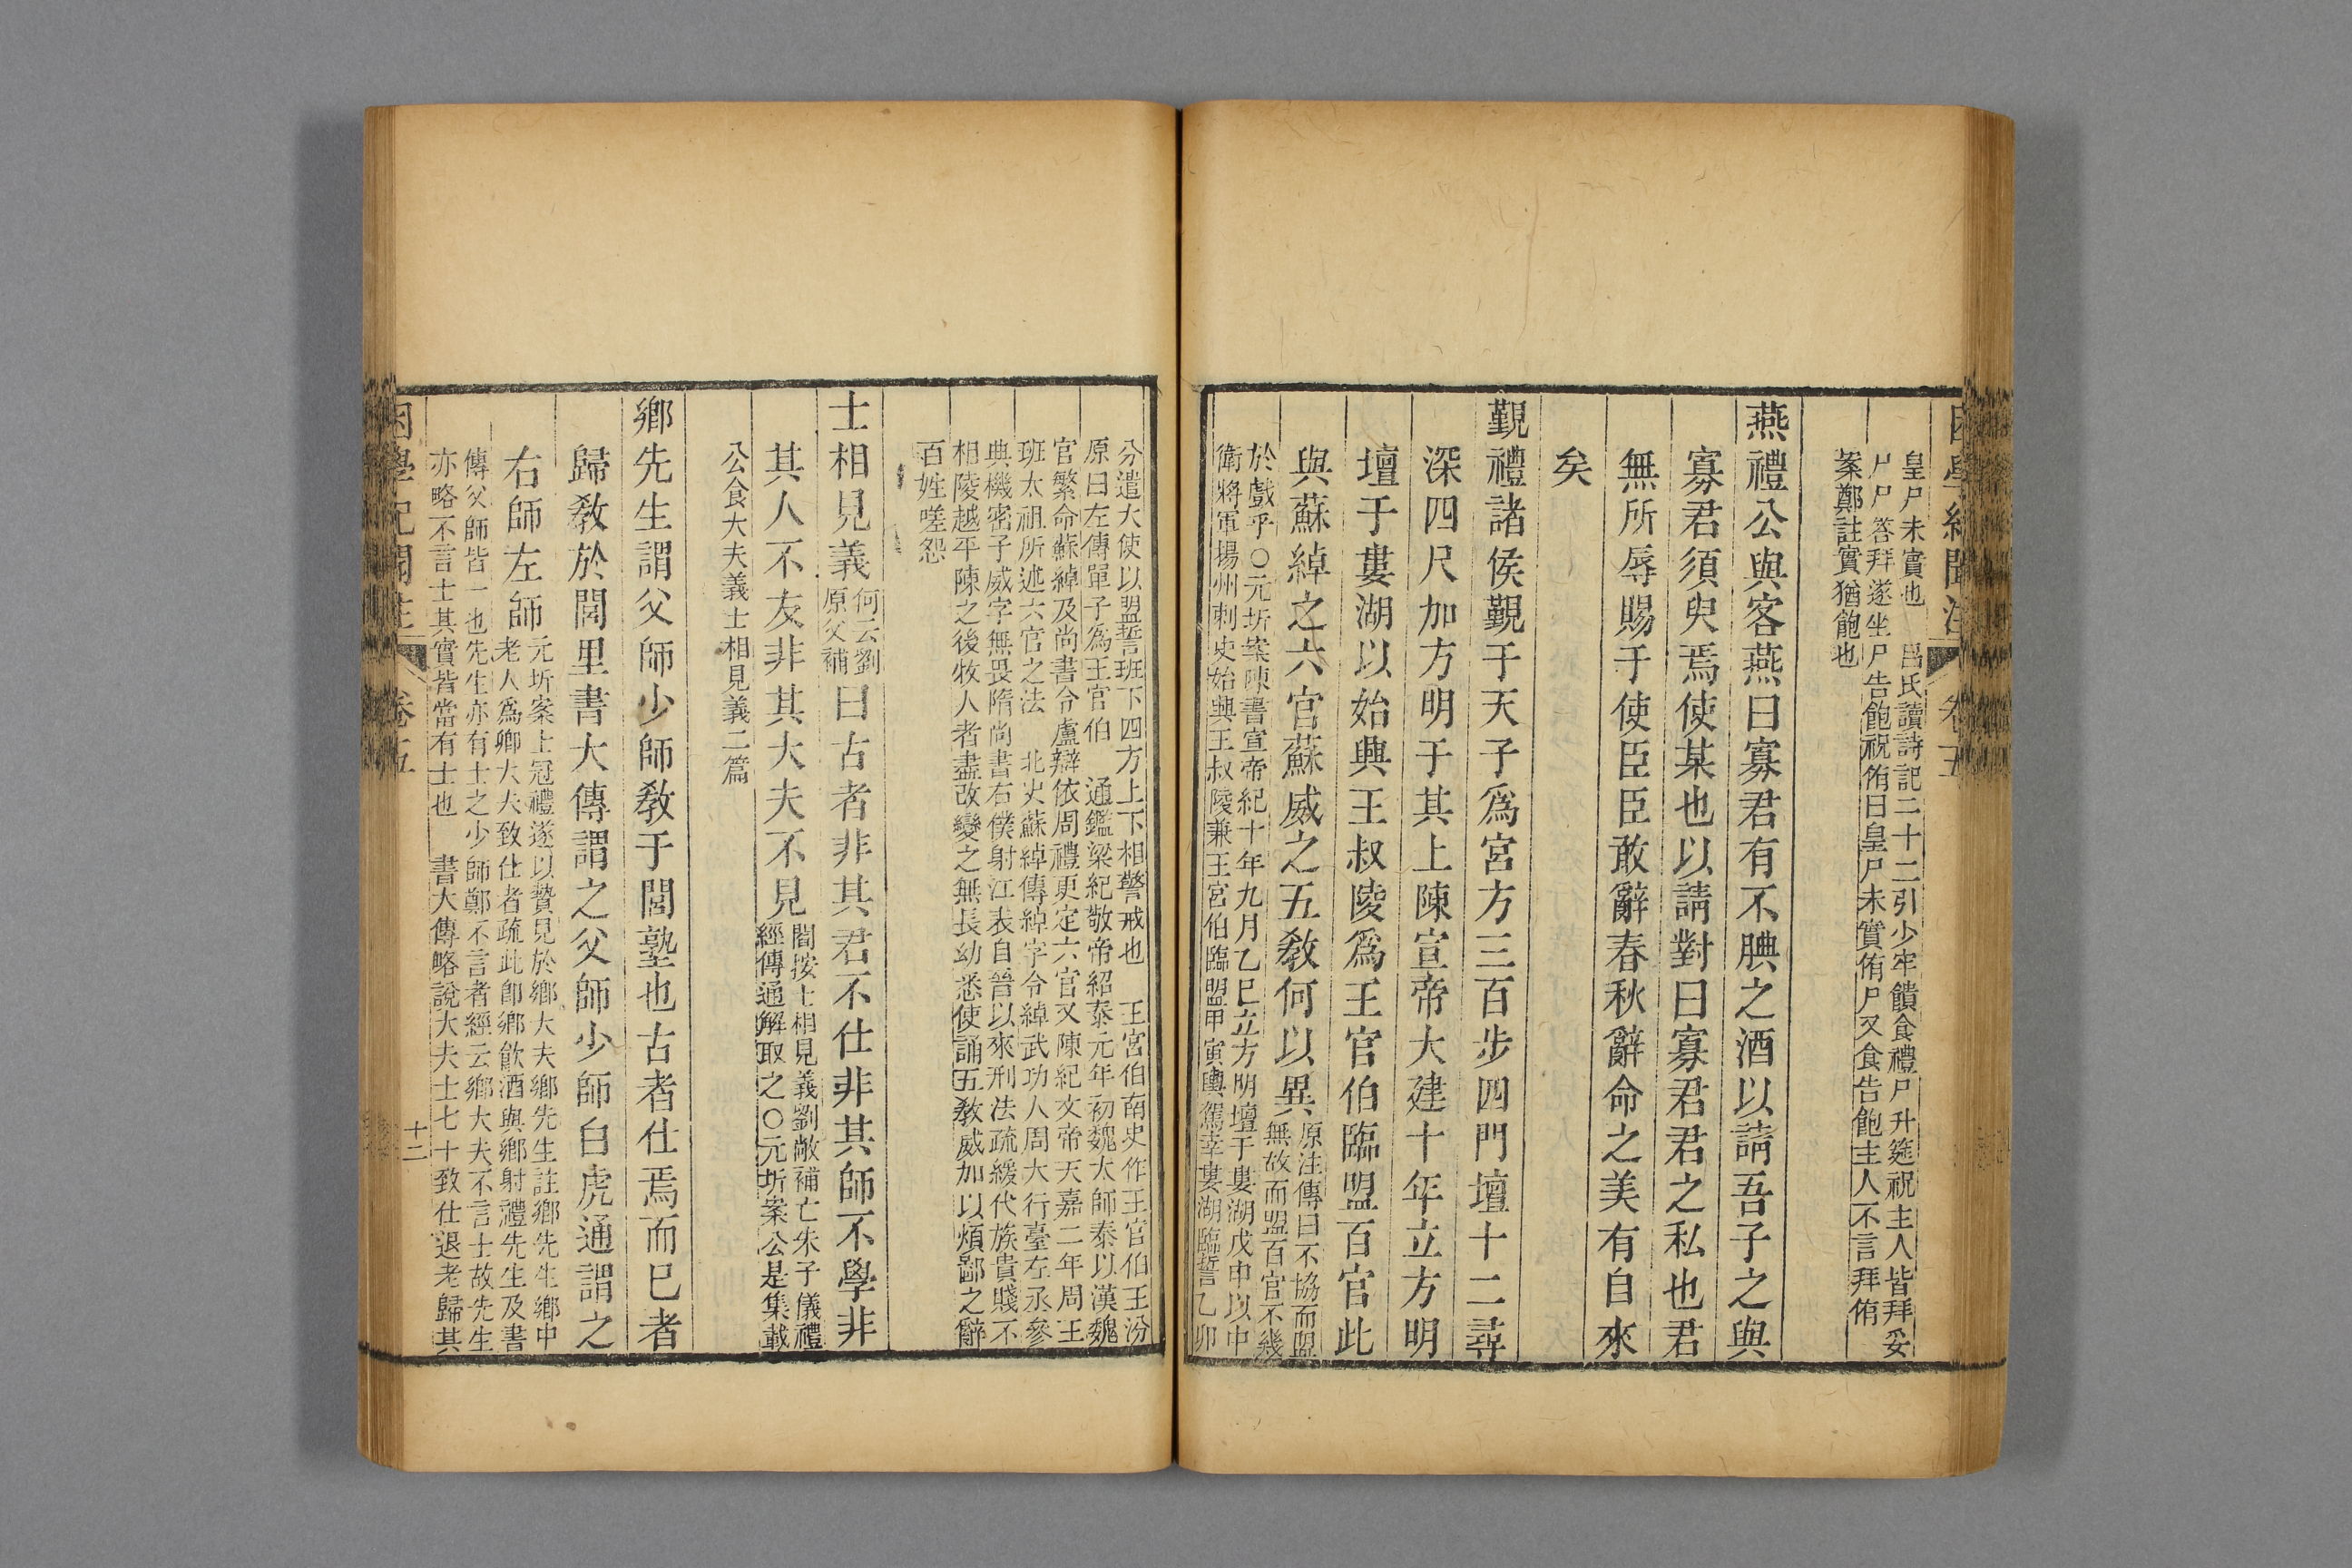 皇尸未實也　呂氏讀詩記二十二引少牢饋食禮尸升筵祝主人皆拜妥
尸尸答拜遂坐尸告飽祝侑曰皇尸未實侑尸又食告飽主人不言拜侑
案鄭註實猶飽也
燕禮公與客燕曰寡君有不腆之酒以請吾子之與
寡君須臾焉使某也以請對曰寡君君之私也君
無所辱賜于使臣臣敢辭春秋辭命之美有自來
矣
覲禮諸侯覲于天子爲宮方三百步四門壇十二尋
深四尺加方明于其上陳宣帝大建十年立方明
壇于婁湖以始興王叔陵爲王官伯臨盟百官此
與蘇綽之六官蘇威之五敎何以異
原注傳曰不協而盟
無故而盟百官不幾
於戲乎○元圻案陳書宣帝紀十年九月乙巳立方明壇于婁湖戊申以中
衛將軍揚州刺史始興王叔陵兼王宮伯臨盟甲寅輿駕幸婁湖臨誓乙卯
分遣大使以盟誓班下四方上下相警戒也　王宮伯南史作王官伯王汾
原曰左傳單子為王官伯　通鑑梁紀敬帝紹泰元年初魏太師泰以漢魏
官繁命蘇綽及尚書令盧辯依周禮更定六官又陳紀文帝天嘉二年周王
班太祖所述六官之法　北史蘇綽傳綽字令綽武功人周大行臺左丞參
典機密子威字無畏隋尚書右僕射江表自晉以來刑法疏緩代族貴賤不
相陵越平陳之後牧人者盡改變之無長幼悉使誦五敎威加以煩鄙之辭
百姓嗟怨
士相見義
何云劉
原父補
曰古者非其君不仕非其師不學非
其人不友非其大夫不見
閻按士相見義劉敞補亡朱子儀禮
經傳通解取之○元圻案公是集載
公食大夫義士相見義二篇
鄉先生謂父師少師敎于閭塾也古者仕焉而已者
歸敎於閭里書大傳謂之父師少師白虎通謂之
右師左師
元圻案士冠禮遂以贄見於鄉大夫鄉先生註鄉先生鄉中
老人爲卿大夫致仕者疏此卽鄉飮酒與鄉射禮先生及書
傳父師皆一也先生亦有士之少師鄭不言者經云鄉大夫不言士故先生
亦略不言士其實皆當有士也　書大傳略說大夫士七十致仕退老歸其
卷五
十二